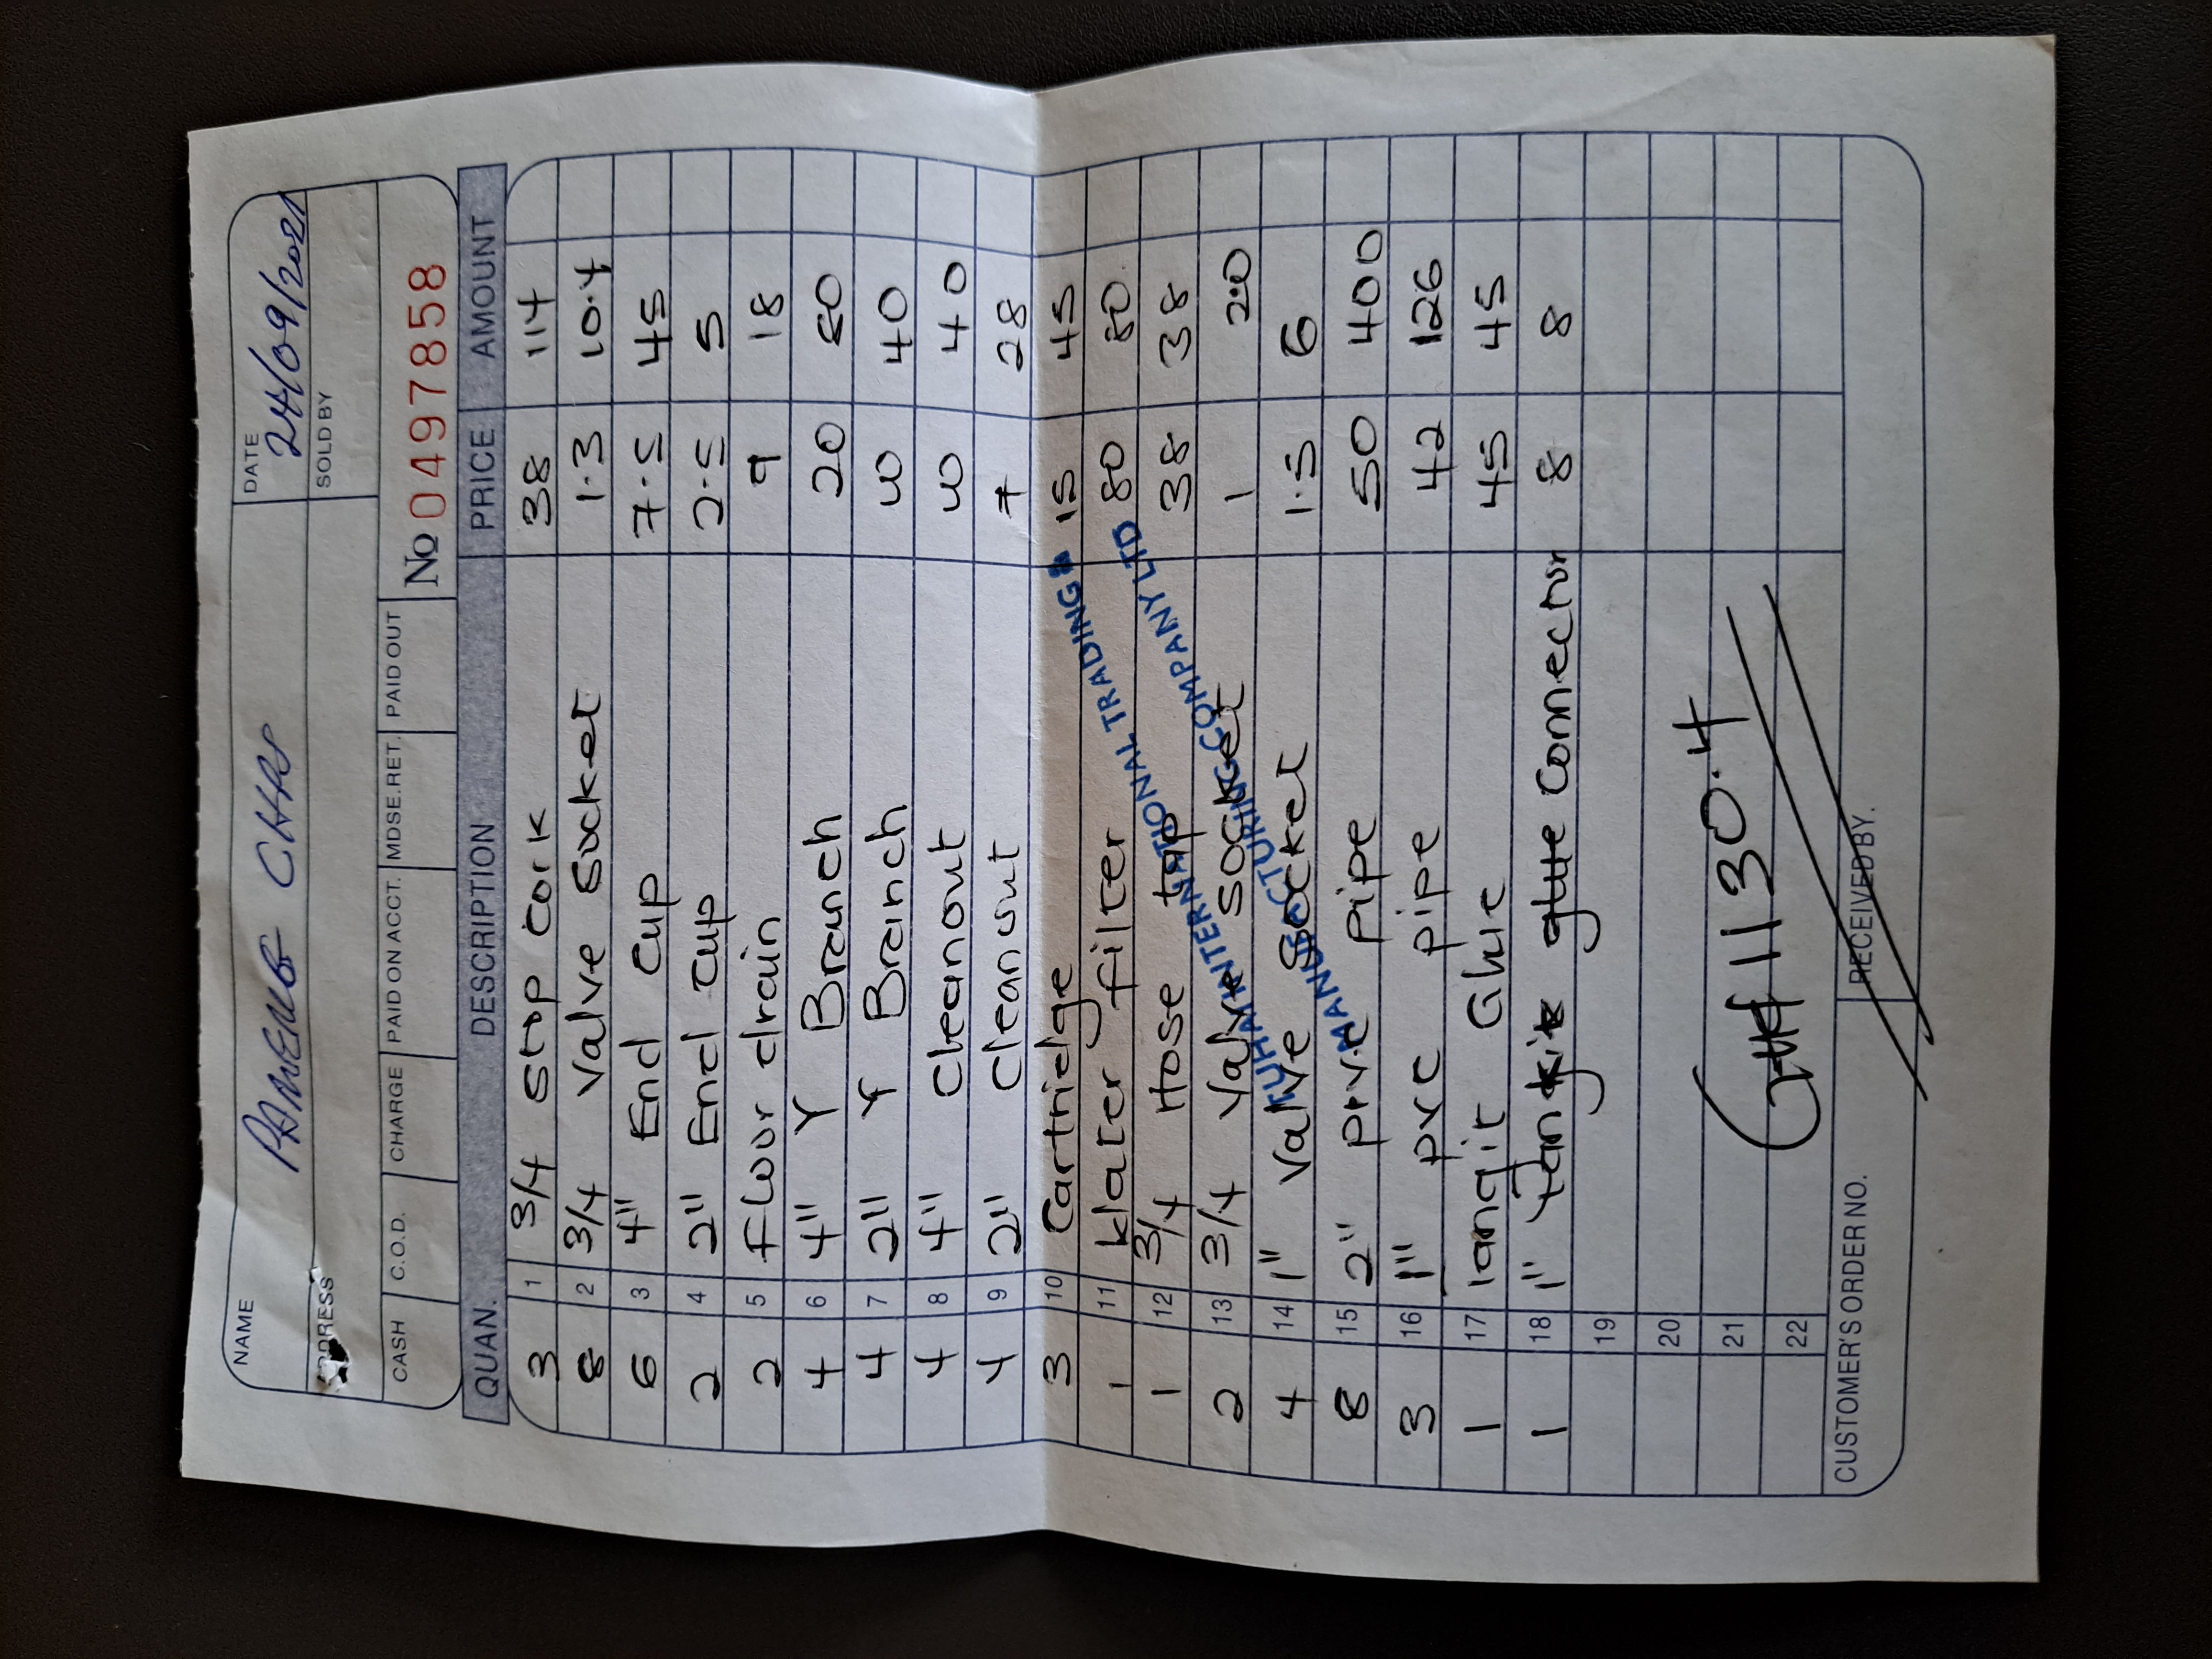 NAME
DATE 24/09/2021
ADDRESS
SOLD BY
CASH C.O.D. CHARGE PAID ON ACCT. MDSE.RET. PAID OUT No 0497858
QUAN. DESCRIPTION PRICE AMOUNT
3 1 3/4 Stop Cork 38 114
8 2 3/4 Valve Socket 1.3 10.4
6 3 4" End Cup 7.5 45
2 4 2" End cup 2.5 5
2 5 Floor drain 9 18
4 6 4" Y Branch 20 80
4 7 2" Y Branch 10 40
4 8 4" Cleanout 10 40
4 9 2" Cleanout 7 28
3 10 Cartridge 15 45
1 11 Water filter 80 80
1 12 3/4 Hose tap 38 38
2 13 3/4 Valve Socket 1 2.0
4 14 1" Valve Socket 1.5 6
8 15 2" pvc pipe 50 400
3 16 1" pvc pipe 42 126
1 17 Tangit Glue 45 45
1 18 1" Connector 8 8
19
20
21
22
INTERNATIONAL TRADING &
MANUFACTURING COMPANY LTD
1130.4
CUSTOMER'S ORDER NO. RECEIVED BY.